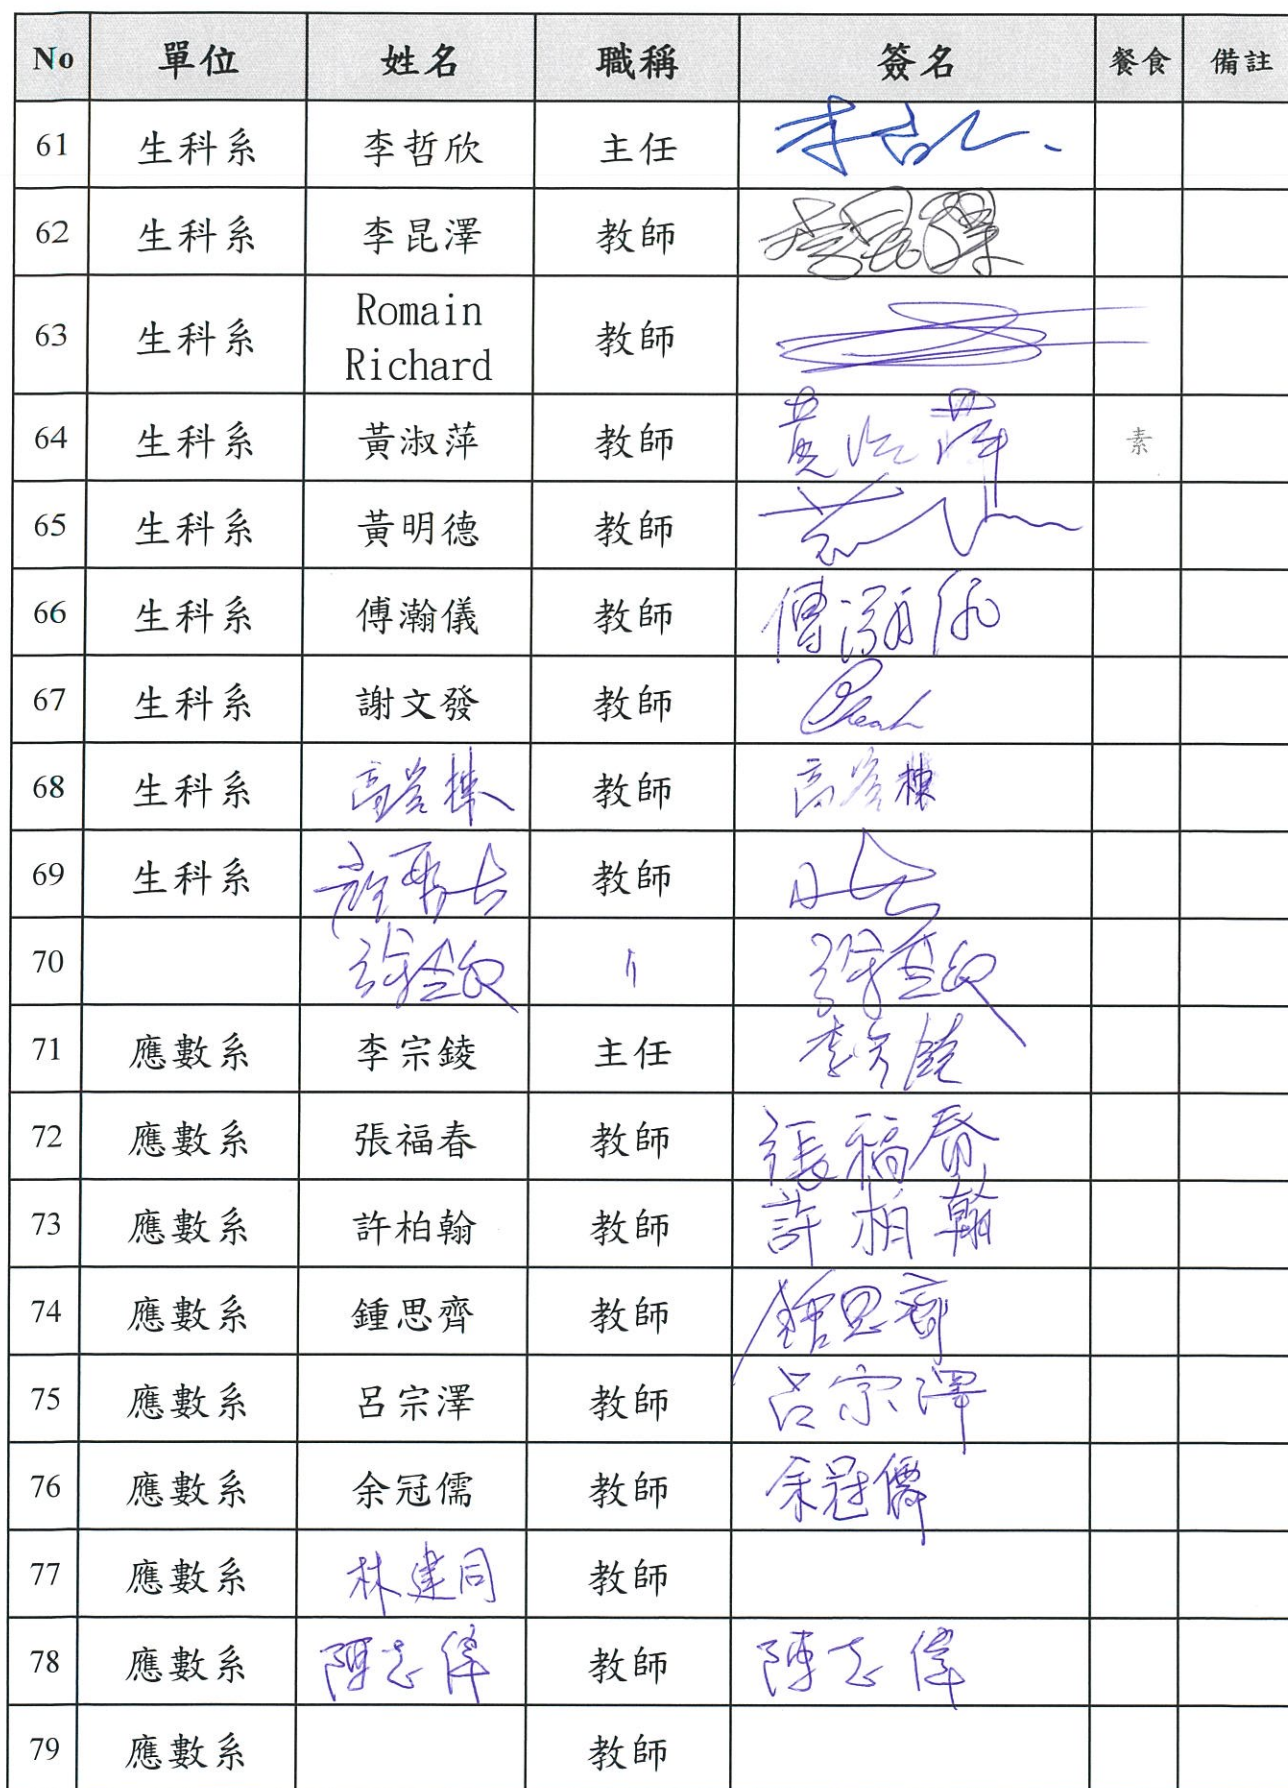 No 單位 姓名 職稱 簽名 餐食 備註
61 生科系 李哲欣 主任
62 生科系 李昆澤 教師 李昆澤
63 生科系 Romain Richard 教師
64 生科系 黃淑萍 教師 黃淑萍 素
65 生科系 黃明德 教師
66 生科系 傅瀚儀 教師 傅瀚儀
67 生科系 謝文發 教師
68 生科系 教師
69 生科系 教師
70
71 應數系 李宗錂 主任 李宗錂
72 應數系 張福春 教師 張福春
73 應數系 許柏翰 教師 許柏翰
74 應數系 鍾思齊 教師 鍾思齊
75 應數系 呂宗澤 教師 呂宗澤
76 應數系 余冠儒 教師 余冠儒
77 應數系 林建同 教師
78 應數系 陳志偉 教師 陳志偉
79 應數系 教師